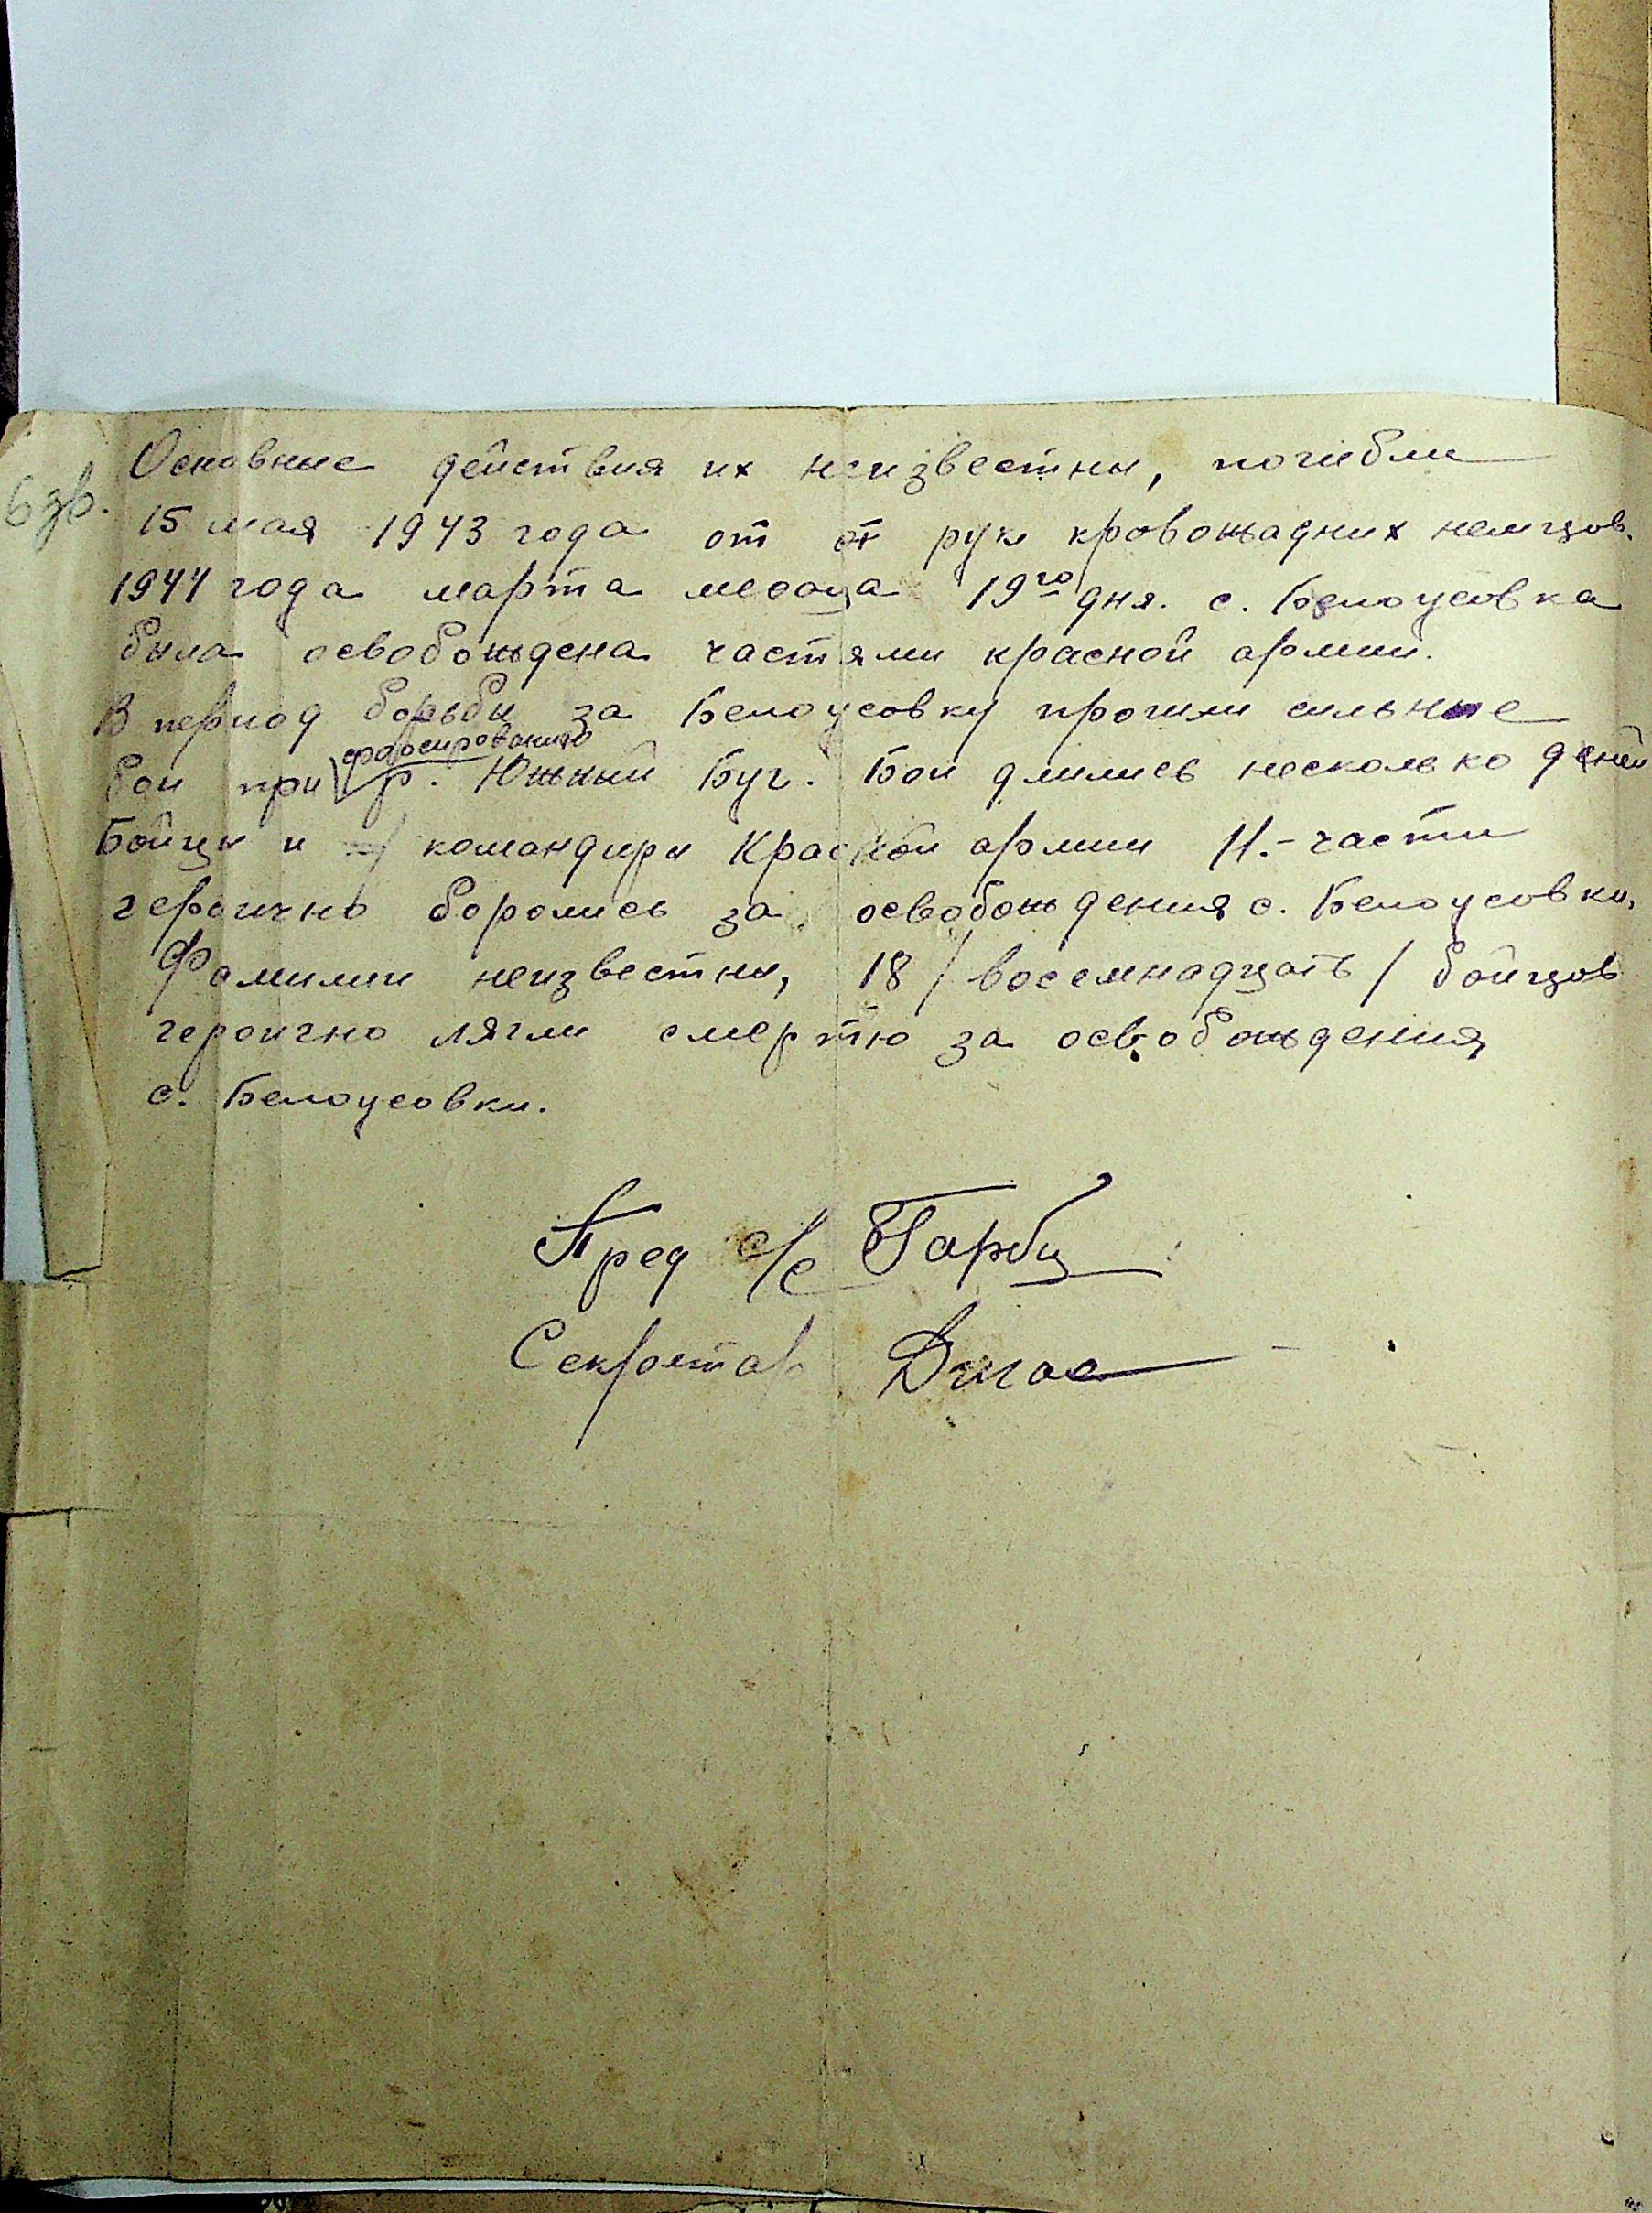 Основние действия их неизвестны, погибли
6 зв. 15 мая 1943 года от от рук кровожадних немцов.
1944 года марта месяца 19го дня. с. Белоусовка
была освобождена частями красной армии.
В период борьбы за Белоусовку прошли сильные
форсированию
бои при р. Южный Буг. Бои длились несколько дней
Бойцы и командиры Красной армии Н.-части
героично боролись за освобождения с. Белоусовки,
Фамилии неизвестны, 18 / восемнадцать / бойцов
героично лягли смертю за освобождения
с. Белоусовки.
Пред с/с
Секретар